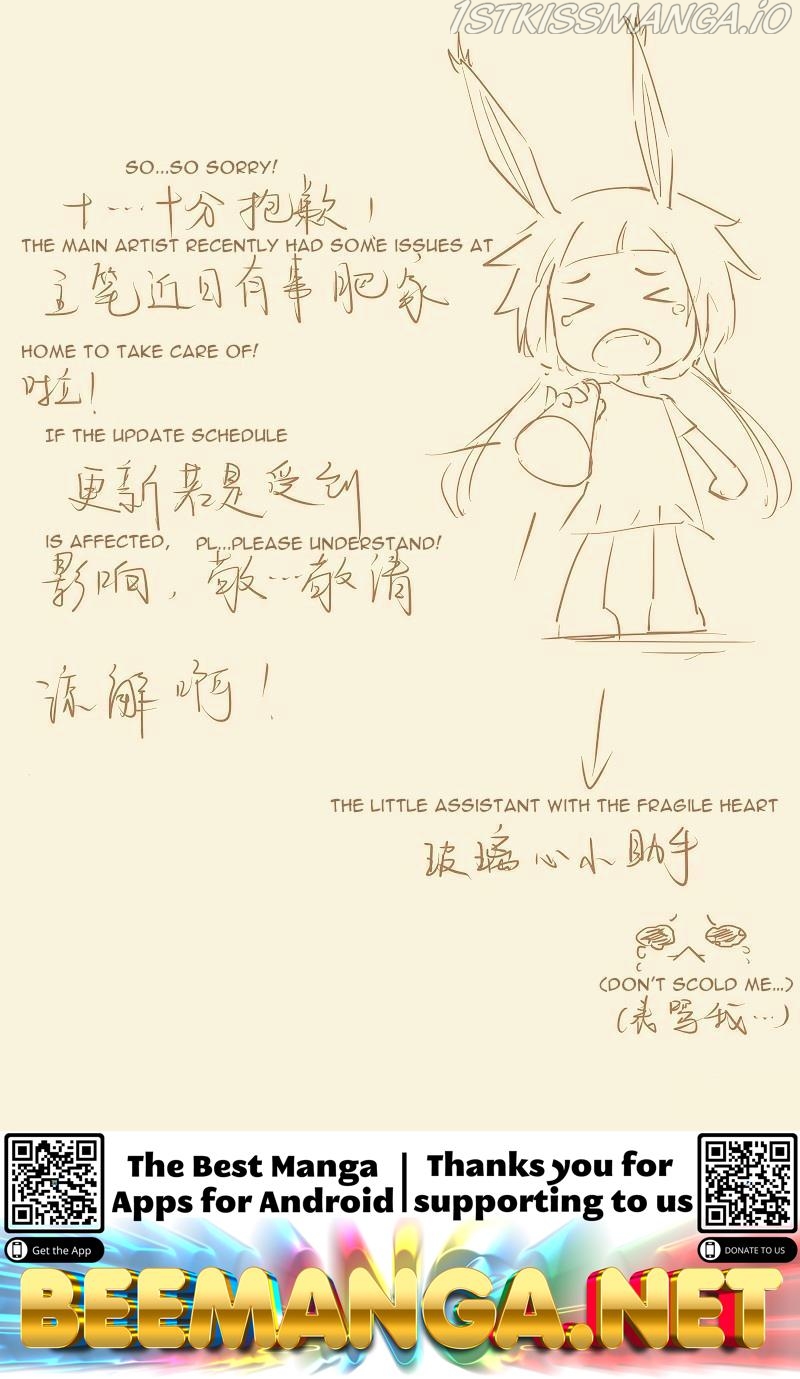 1STKISSMANGA.IO
SO...SO SORRY!
十…十分抱歉！
THE MAIN ARTIST RECENTLY HAD SOME ISSUES AT
主笔近日有事肥家
HOME TO TAKE CARE OF!
啦！
IF THE UPDATE SCHEDULE
更新若是受到
IS AFFECTED, PL...PLEASE UNDERSTAND!
影响，敬…敬请
谅解啊！
THE LITTLE ASSISTANT WITH THE FRAGILE HEART
玻璃心小助手
(DON'T SCOLD ME...)
(表骂我…)
The Best Manga
Apps for Android
Thanks you for
supporting to us
Get the App
DONATE TO US
BEEMANGA.NET